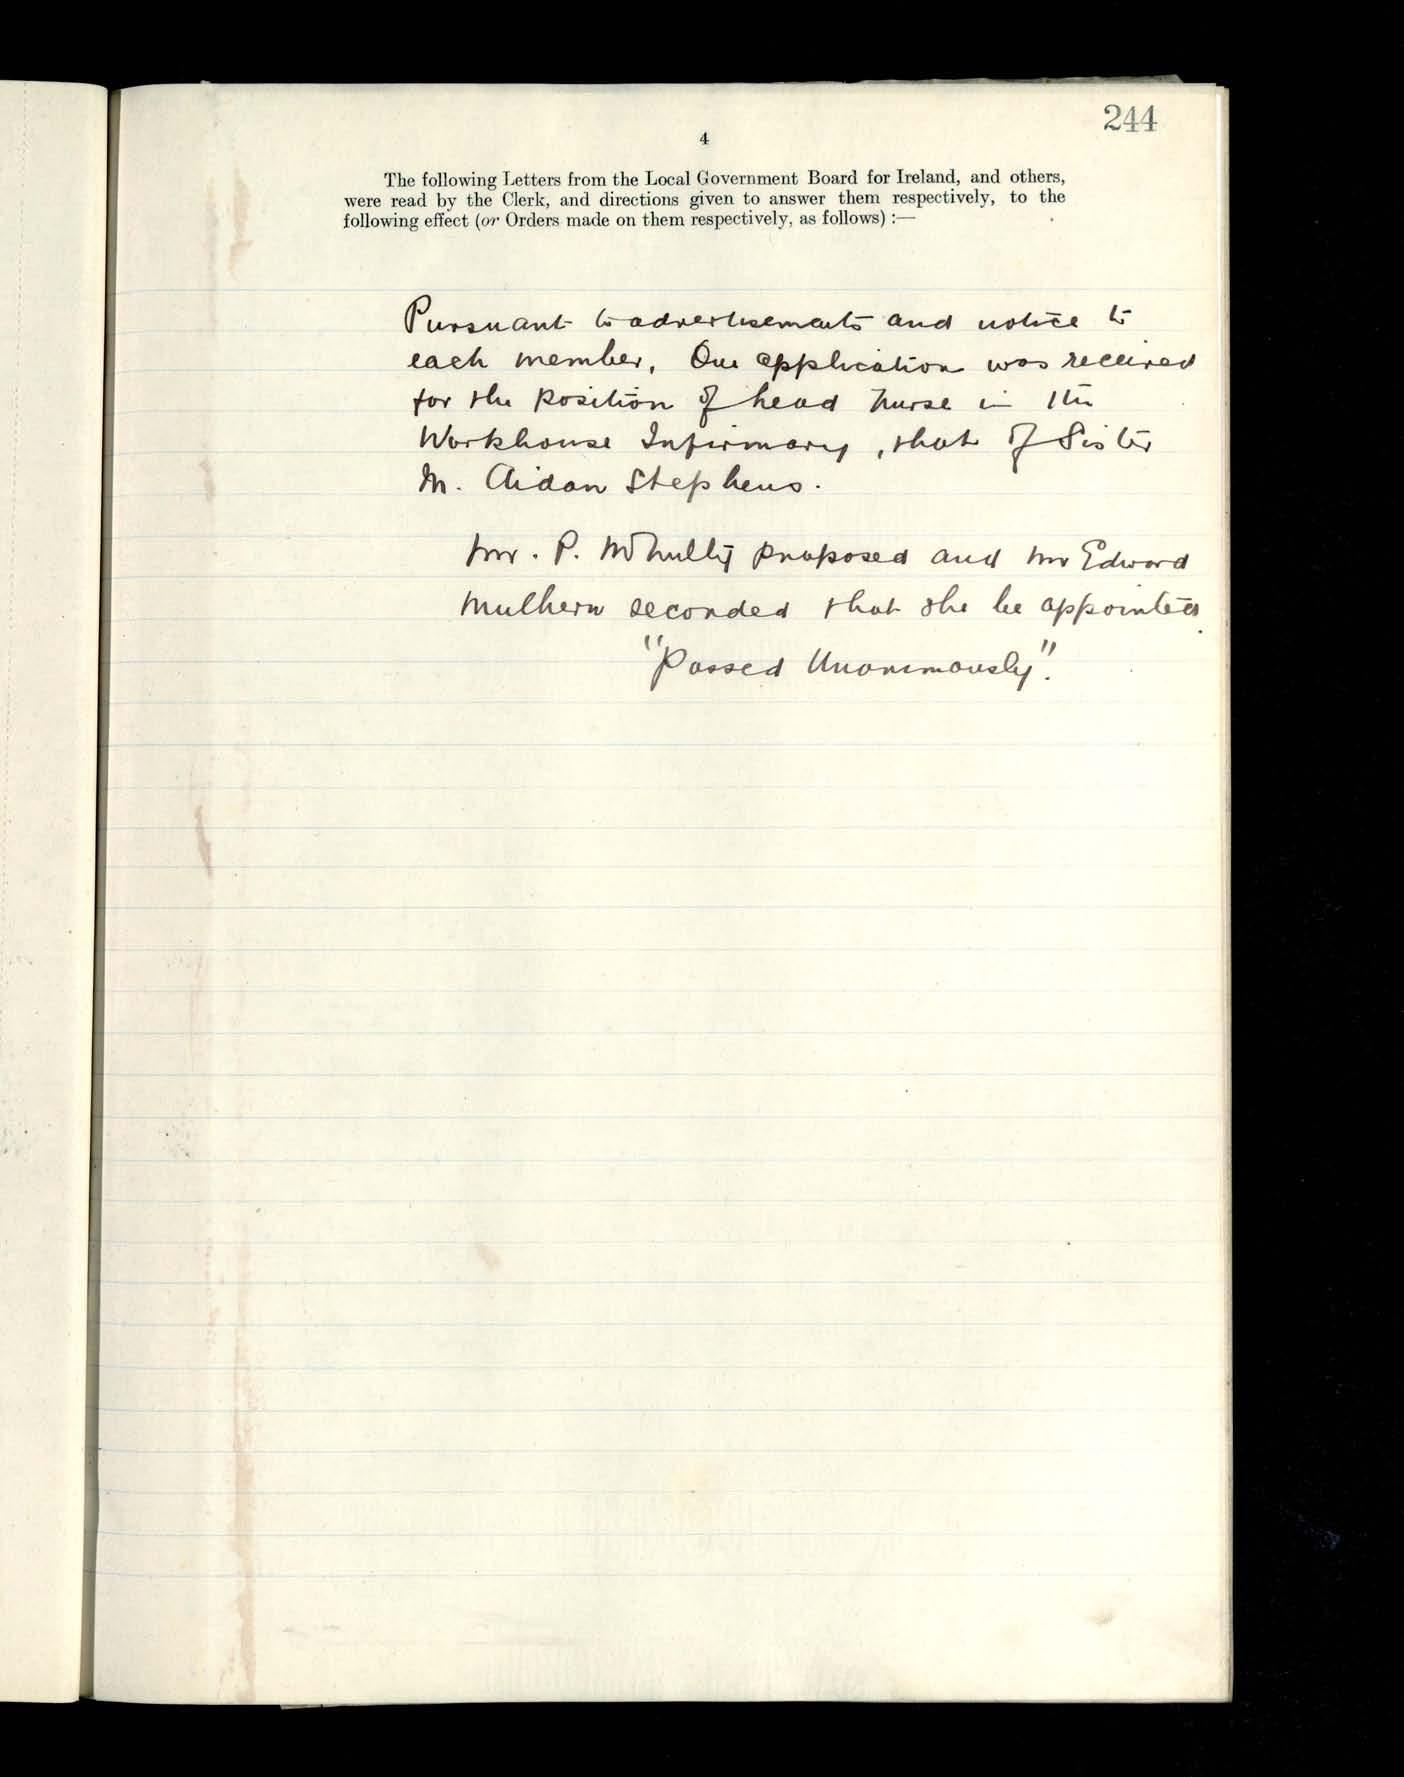 244
4
The following Letters from the Local Government Board for Ireland, and others,
were read by the Clerk, and directions given to answer them respectively, to the
following effect (or Orders made on them respectively, as follows) :—
Pursuant to advertisements and notice to
each member, One application was received
for the position of head nurse in the
Workhouse Infirmary, that of Sister
M. Aidan Stephens.
Mr. P. proposed and Mr Edward
Mulhern seconded that she be appointed.
"Passed Unanimously".